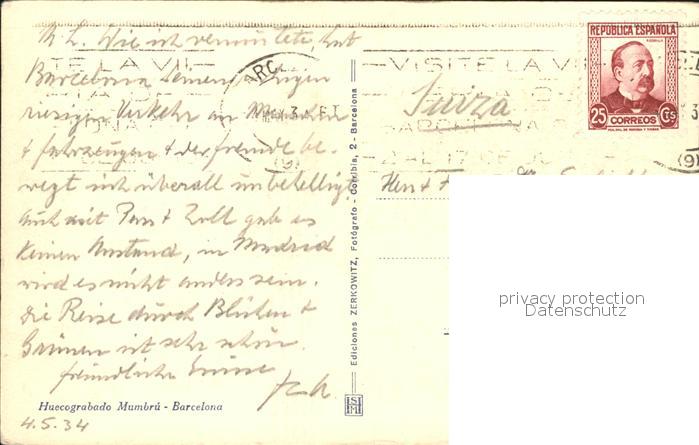 M. L. Wie ich vermutete, hat
Barcelona seinen
riesigen Verkehr an Menschen
& Fahrzeugen & der Fremde be-
wegt sich überall unbehelligt,
auch mit Pass & Zoll gab es
keinen Anstand, in Madrid
wird es nicht anders sein.
Die Reise durch Blühen &
Grünen ist sehr schön.
freundliche Grüsse
Huecograbado Mumbrú - Barcelona
4.5.34
Ediciones ZERKOWITZ, Fotógrafo - Cortibia, 2 - Barcelona
VISITE LA VII
Suiza
Herr &
REPÚBLICA ESPAÑOLA
25 CORREOS Cts
privacy protection
Datenschutz